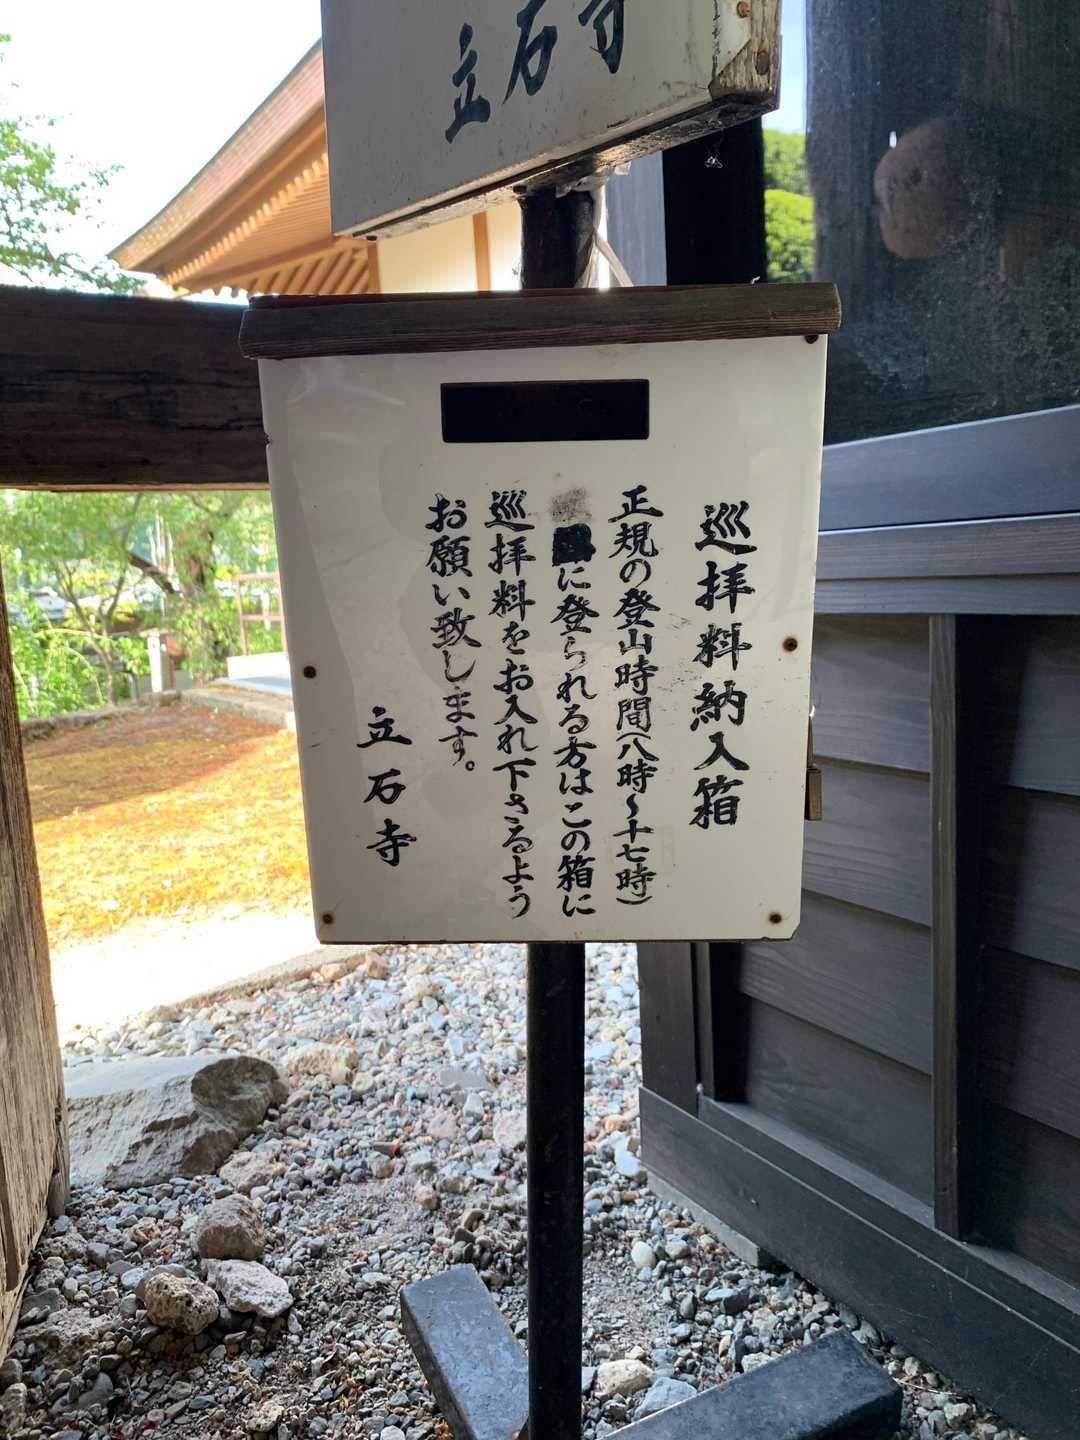 立石寺
巡拝料納入箱
正規の登山時間(八時〜十七時)
に登られる方はこの箱に
巡拝料をお入れ下さるよう
お願い致します。
立石寺